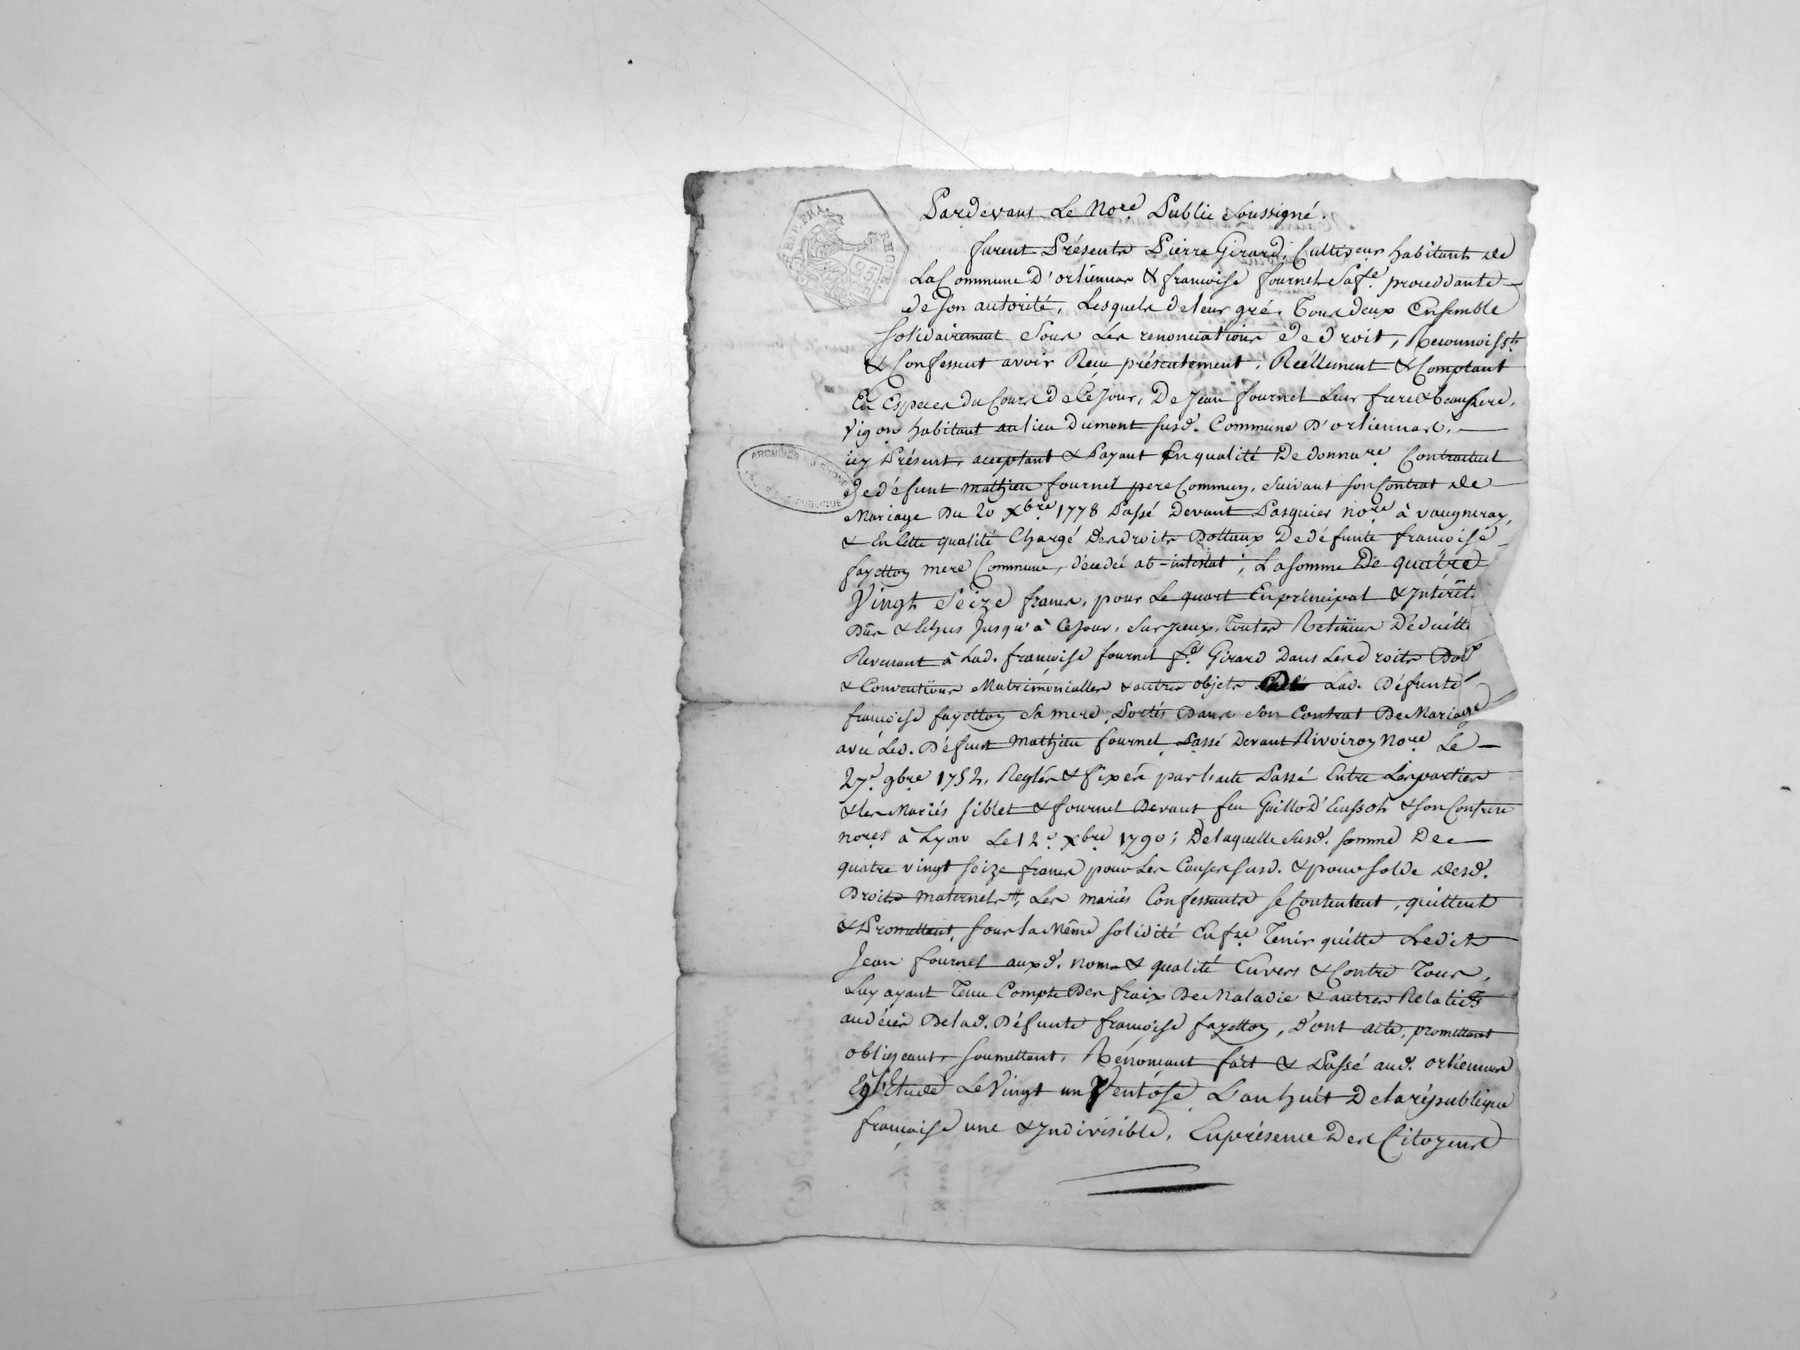 Pardevant Le No.re Public Soussigné.
furent Présents Pierre Girard, Cultiveur habitant de
La Commune D'orliennas & francoise fournel Sa f.e proceddante
de Son autorité, Lesquels de leur gré, Tous deux Ensemble
Solidairement Sous Les renonciations de droit, Reconnoiss.t
& Confessent avoir Reçu présentement, Réellement & Comptant
En Especes du Cours de Ce Jour, De Jean fournel Leur frere & beaufrere,
Vigon habitant au lieu Dumont susd. Commune D'orliennas,
icy Présent, acceptant & Payant En qualité De donna.re Contractuel
de défunt Mathieu fournel pere Commun, suivant son Contrat de
Mariage Du 20 Xbre 1778 Passé Devant Pasquier no.re à vaugneray,
& En Cette qualité Chargé Des droits Dottaux De défunte francoise
fayolloy mere Commune, décédée ab-intestat, La Somme De quatre
Vingt Seize francs, pour Le quart En principal & Intérêt
Dûs & Echus Jusqu'à Ce Jour, Sur yceux, Toutes Retenues Déduitte
Revenant à Lad. francoise fournel f.e Girard Dans Les droits Dot.x
& Conventions Matrimonialles & autres objets Lad. Défunte
francoise fayolloy Sa mere, Portés Dans Son Contrat De Mariage
avec Led. Défunt Mathieu fournel Passé Devant Rivoiroy No.re Le
27.e 9bre 1752, Reglés & fixés par l'acte Passé Entre Les parties
& Les Mariés Siblet & fournel Devant feu Guillod' & son Confrere
no.res à Lyon Le 12.e Xbre 1790; De laquelle Susd. Somme De
quatre vingt seize francs pour Les Causes Susd. & pour solde Desd.
Droits Maternels, Les mariés Confessants se Contentent, quittent
& Promettent, sous la Même solidité En f.re Tenir quitte Ledit
Jean fournel auxd. noms & qualité Envers & Contre Tous,
Luy ayant Tenu Compte Des fraix De Maladie & autres Relatifs
au décès De lad. Défunte francoise fayolloy, D'ont acte, promettant
obligeant, soumettant, Rénonçant fait & Passé aud. orliennas
Etude Le Vingt un Ventôse L'an huit De la république
francoise une & Indivisible, En présence Des Citoyens
ARCHIVES DU RHONE